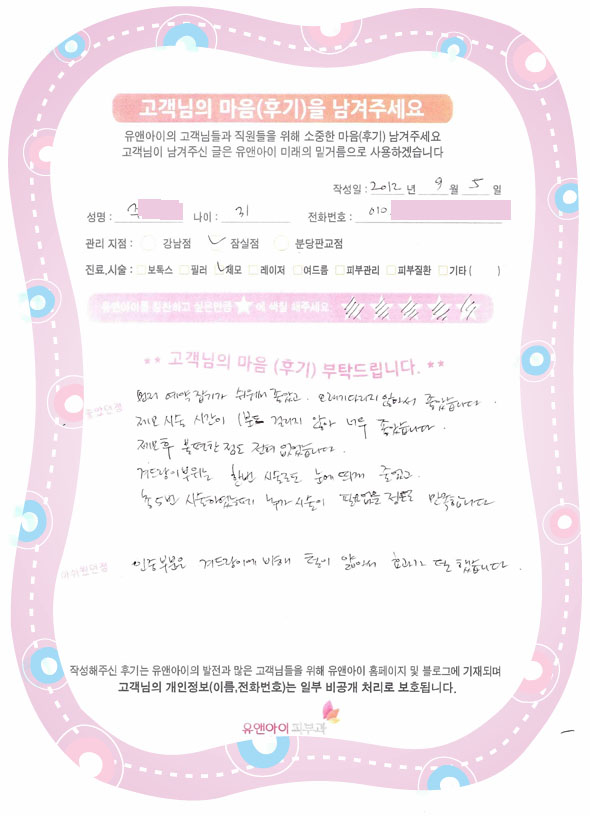 고객님의 마음(후기)을 남겨주세요
유앤아이의 고객님들과 직원들을 위해 소중한 마음(후기) 남겨주세요
고객님이 남겨주신 글은 유앤아이 미래의 밑거름으로 사용하겠습니다
작성일 : 2012 년 9 월 5 일
성명 : 나이 : 31 전화번호 : 010
관리 지점 : 강남점 잠실점 분당판교점
진료,시술 : 보톡스 필러 제모 레이저 여드름 피부관리 피부질환 기타 ( )
유앤아이를 칭찬하고 싶은만큼 ★ 에 색칠 해주세요
** 고객님의 마음 (후기) 부탁드립니다. **
먼저 예약 잡기가 쉬워서 좋았고. 오래기다리지 않아서 좋았습니다.
좋았던점
제모 시술 시간이 1분도 걸리지 않아 너무 좋았습니다.
제모후 불편한 점도 전혀 없었습니다.
겨드랑이부위는 한번 시술로도 눈에 띄게 줄었고.
총 5번 시술하였는데 추가시술이 필요없을 정도로 만족합니다
인중부분은 겨드랑이에 비해 털이 얇아서 효과가 덜 했습니다.
아쉬웠던점
작성해주신 후기는 유앤아이의 발전과 많은 고객님들을 위해 유앤아이 홈페이지 및 블로그에 기재되며
고객님의 개인정보(이름,전화번호)는 일부 비공개 처리로 보호됩니다.
유앤아이피부과